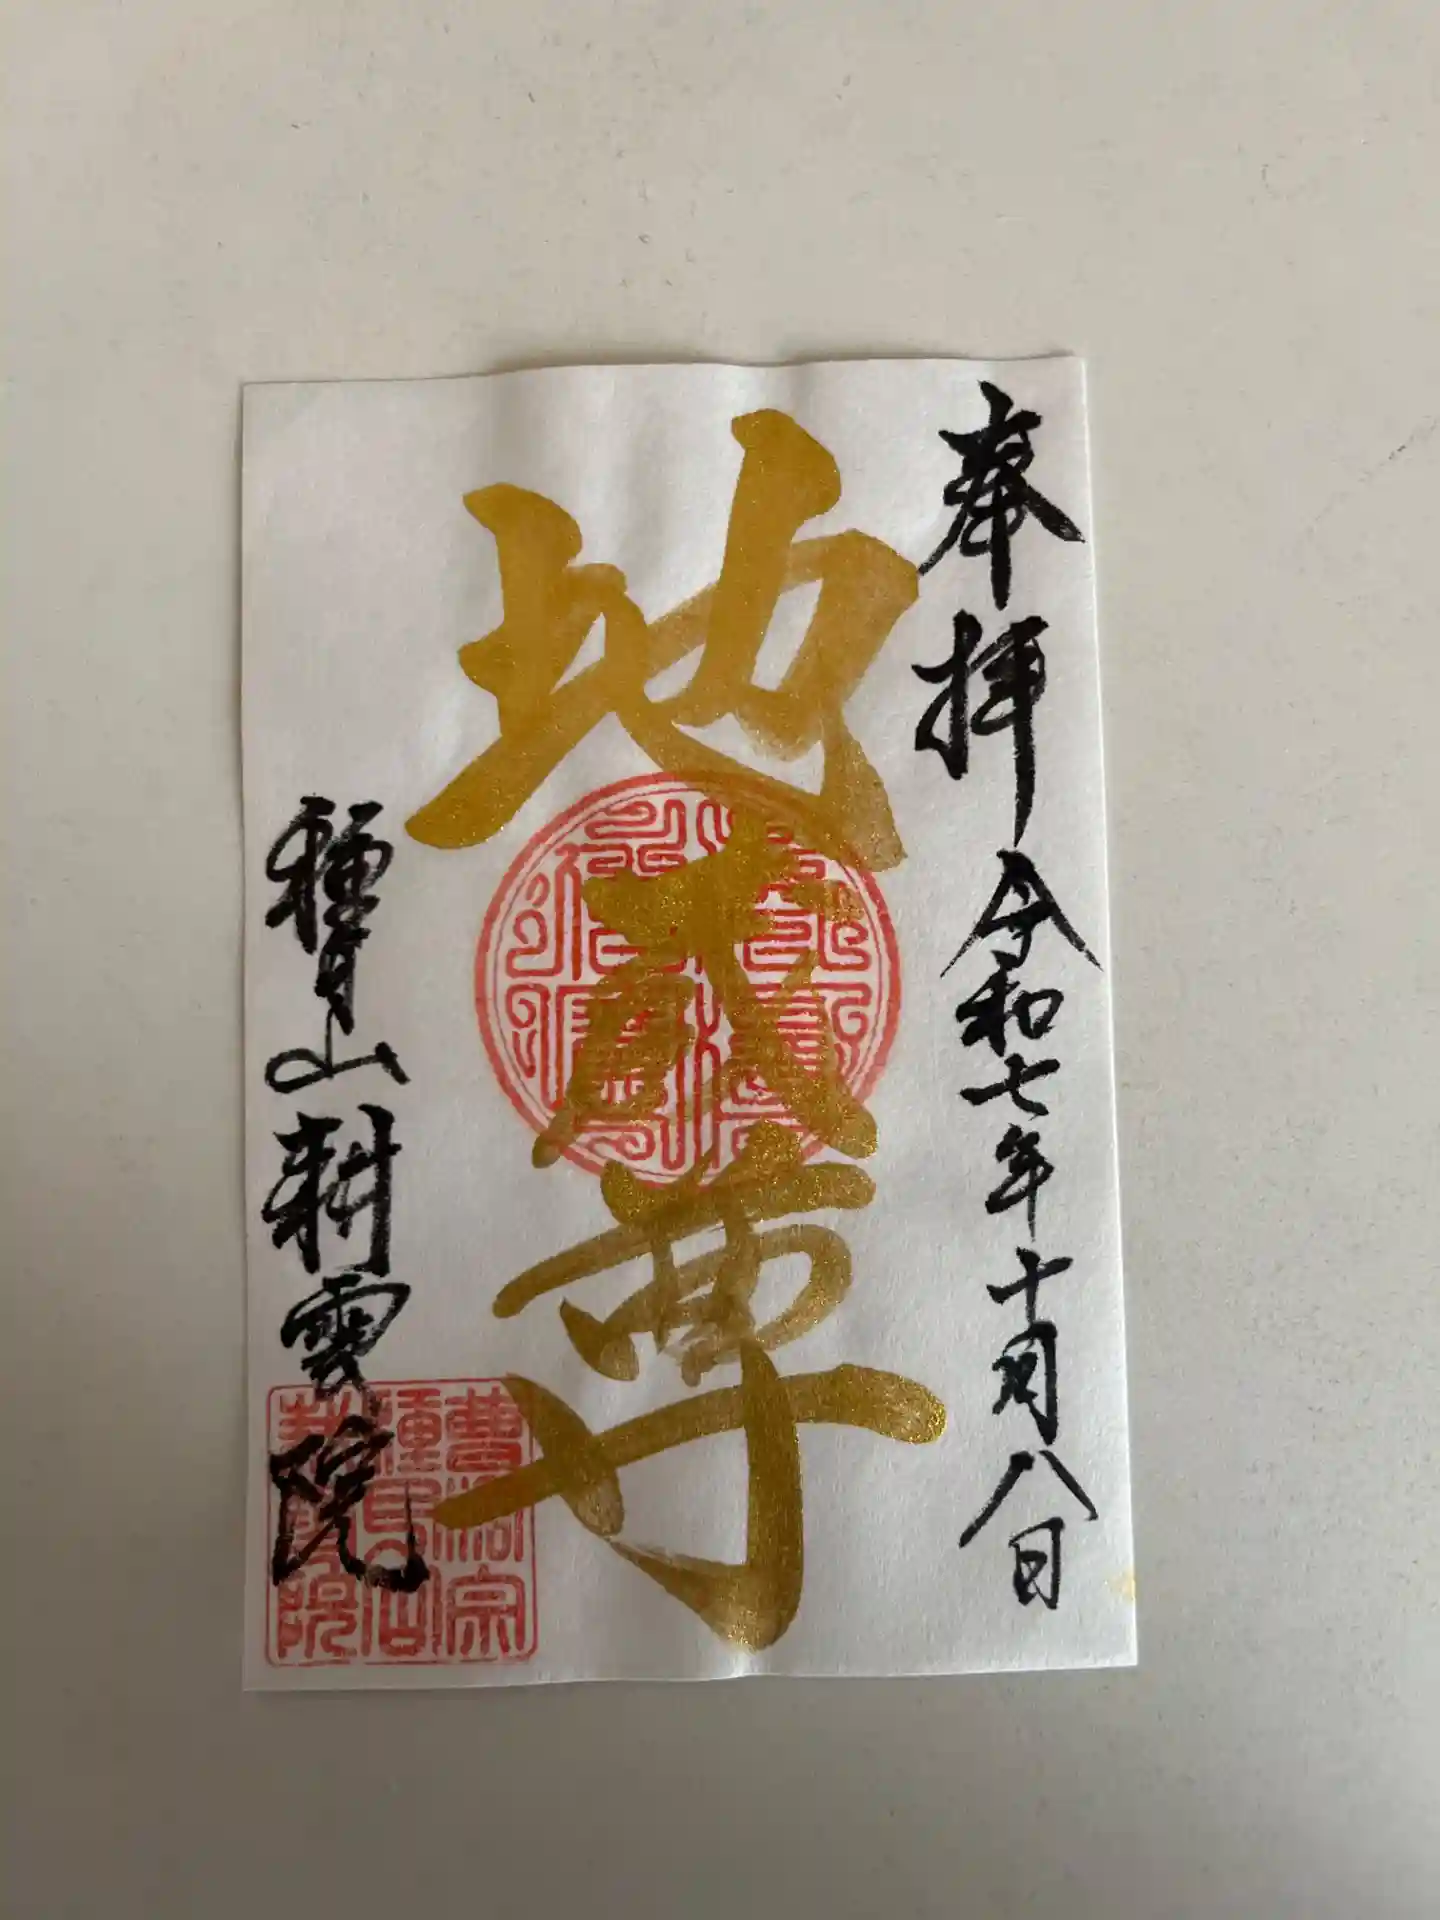 奉拝 令和七年十月八日
地蔵尊
種月山耕雲院
曹洞宗
種月山
耕雲院